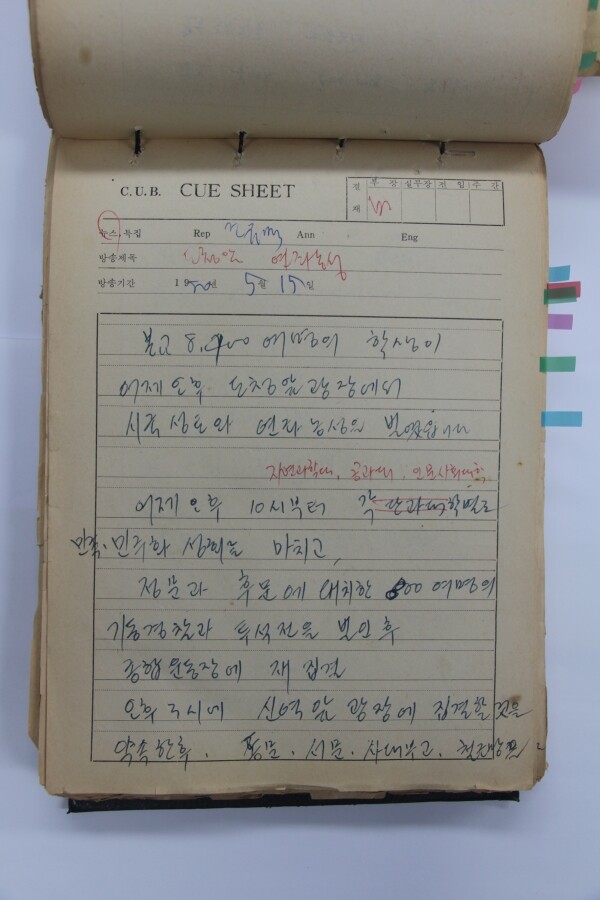 C.U.B. CUE SHEET
결재 부장 실무장 전일 주간
뉴스 특집 Rep Ann Eng
방송제목 연좌농성
방송기간 1980년 5월 15일
본교 8,000 여명의 학생이
어제 오후 도청앞 광장에서
시국 성토와 연좌 농성을 벌였읍니다
자연과학대, 공과대, 인문사회대학
어제 오후 10시부터 각 단과대학별로
민족·민주화 성회를 마치고,
정문과 후문에 대치한 800 여명의
기동경찰과 투석전을 벌인후
종합운동장에 재 집결
오후 3시에 신역앞 광장에 집결할 것을
약속한후, 동문, 서문, 사대부고,